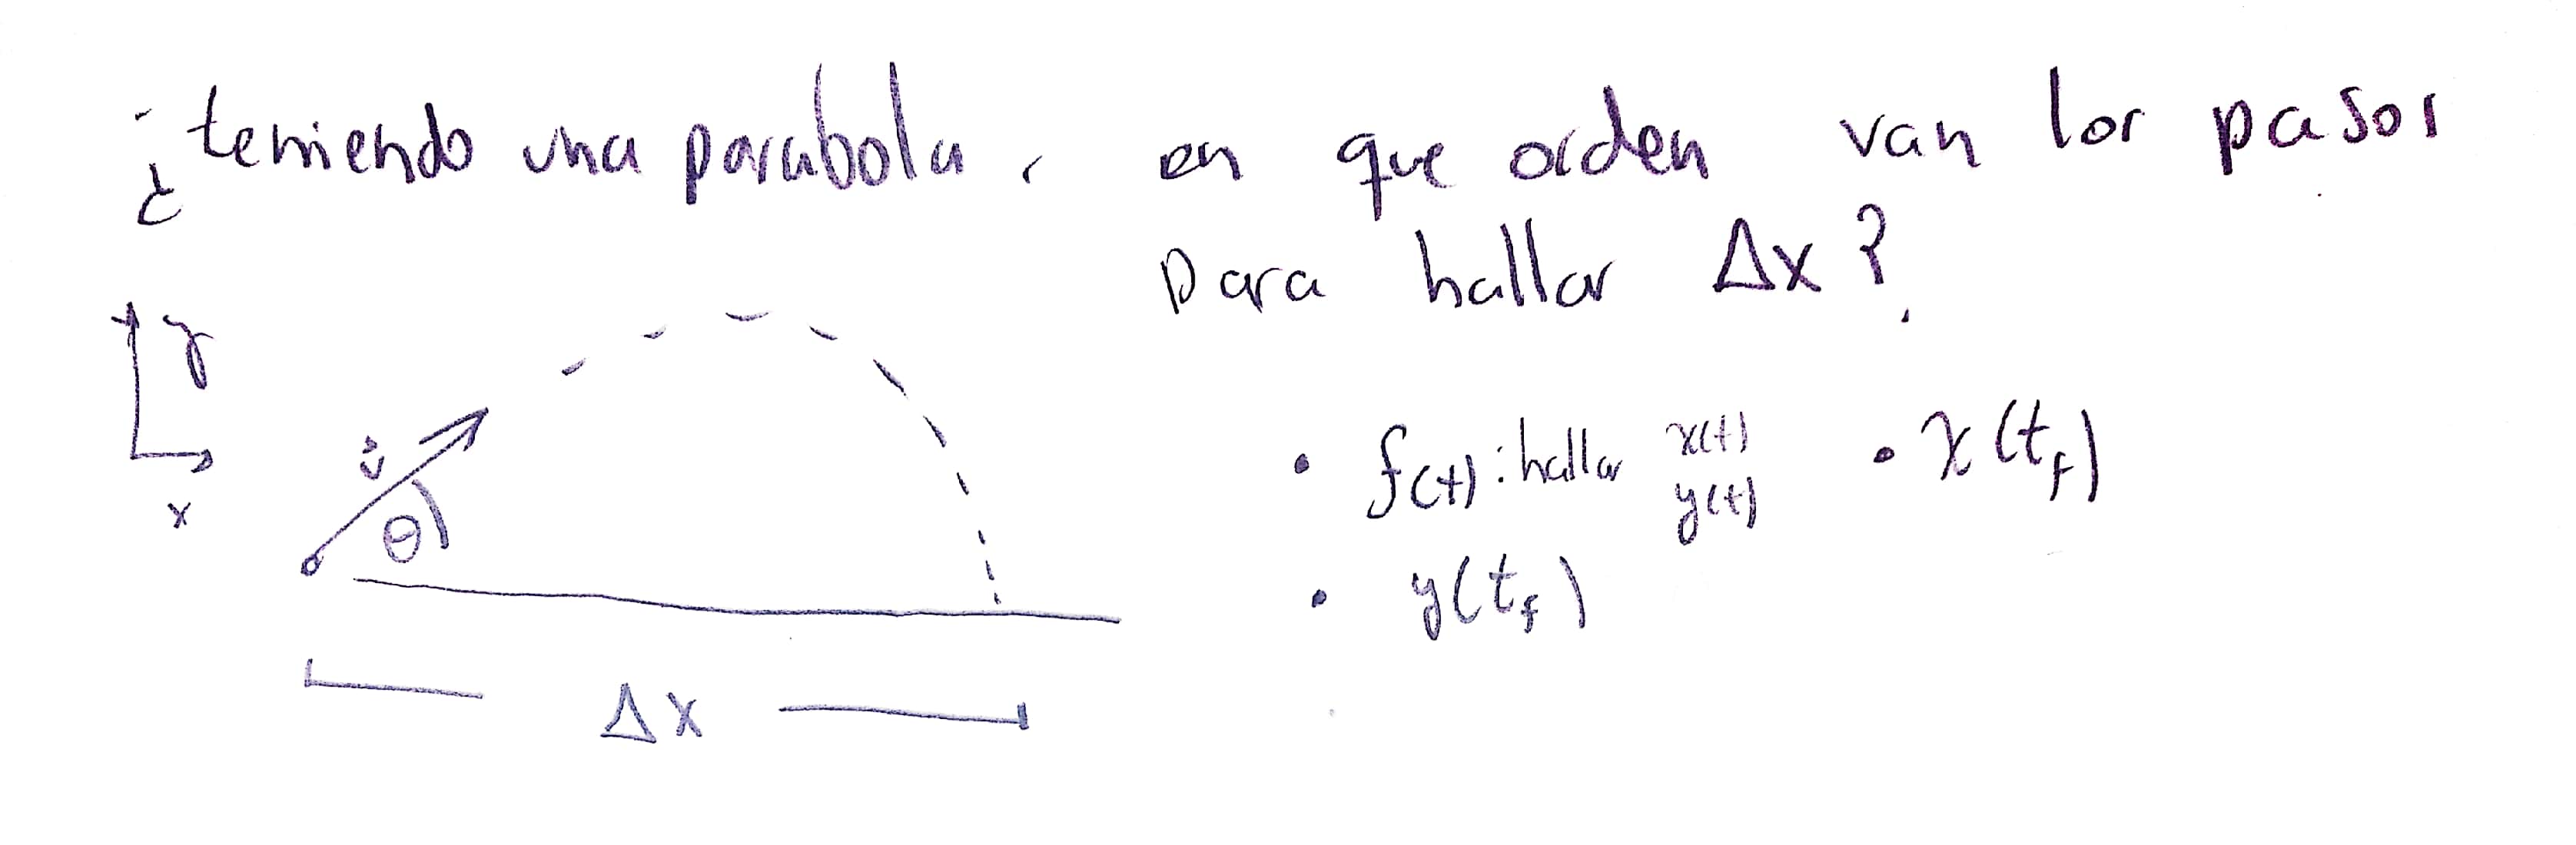 ¿teniendo una parabola, en que orden van los pasos
para hallar Δx?
y
x
v
θ
Δx
• f(t): hallar x(t) y(t) • x(t_f)
• y(t_f)